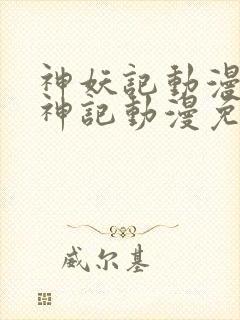 神妖記動漫
神記動漫免
威尔基